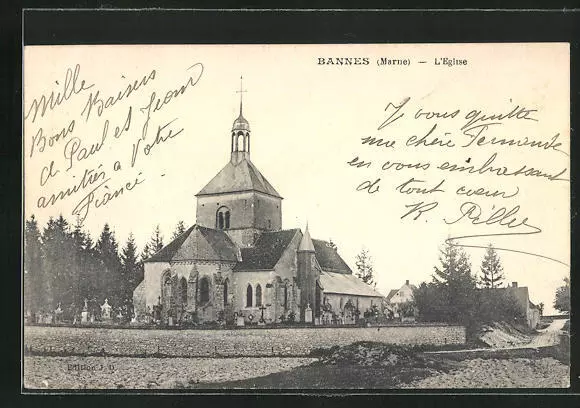 BANNES (Marne) — L'Eglise
Mille
bons Baisers
de Paul et Jean
amitiés à Votre
Fiancé.
Je vous quitte
ma chère Fernande
en vous embrassant
de tout coeur
Edition J. D.